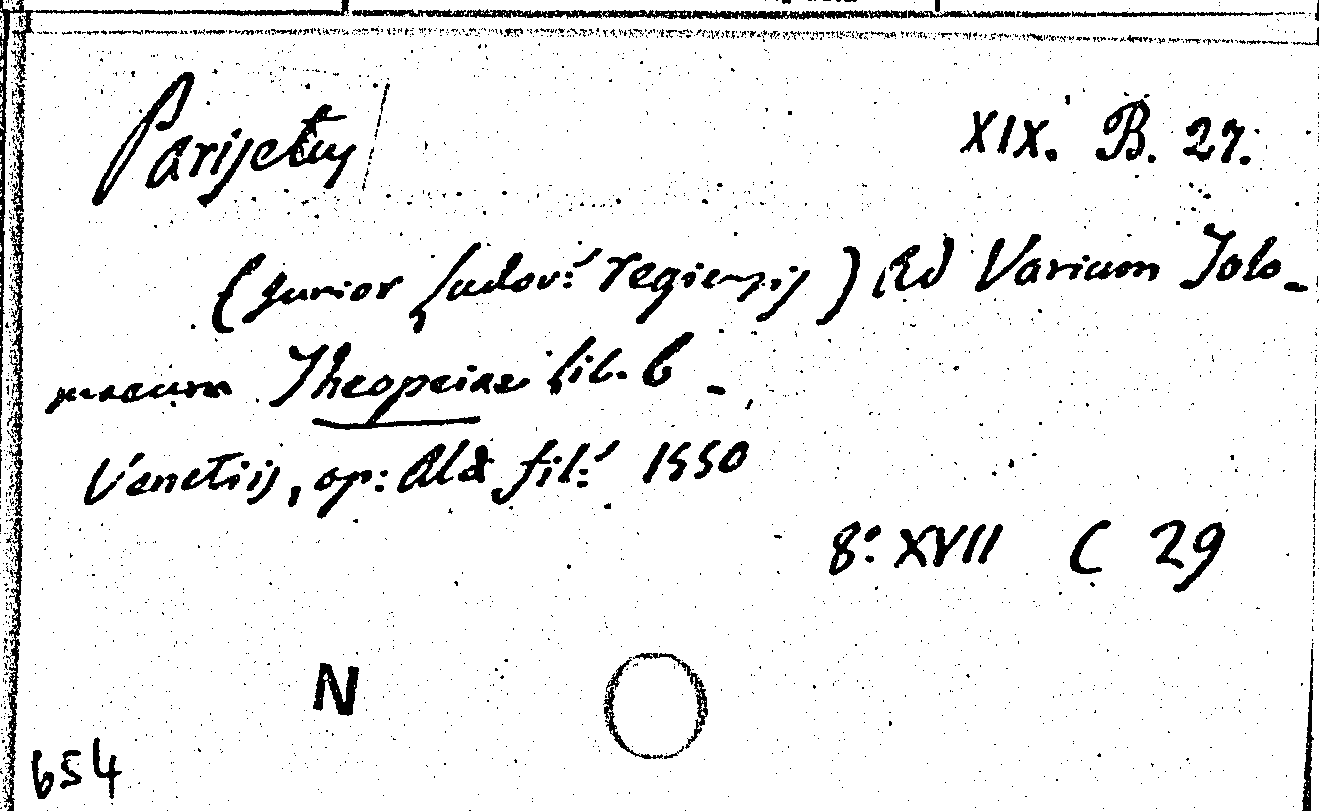 Parisetus XIX. B. 27.
(junior Ludov: regiensis) Ad Varium Tolo-
maeum Theopeiae lib. 6 -
Venetiis, ap: Ald fil: 1550
8° XVII C 29
N
654